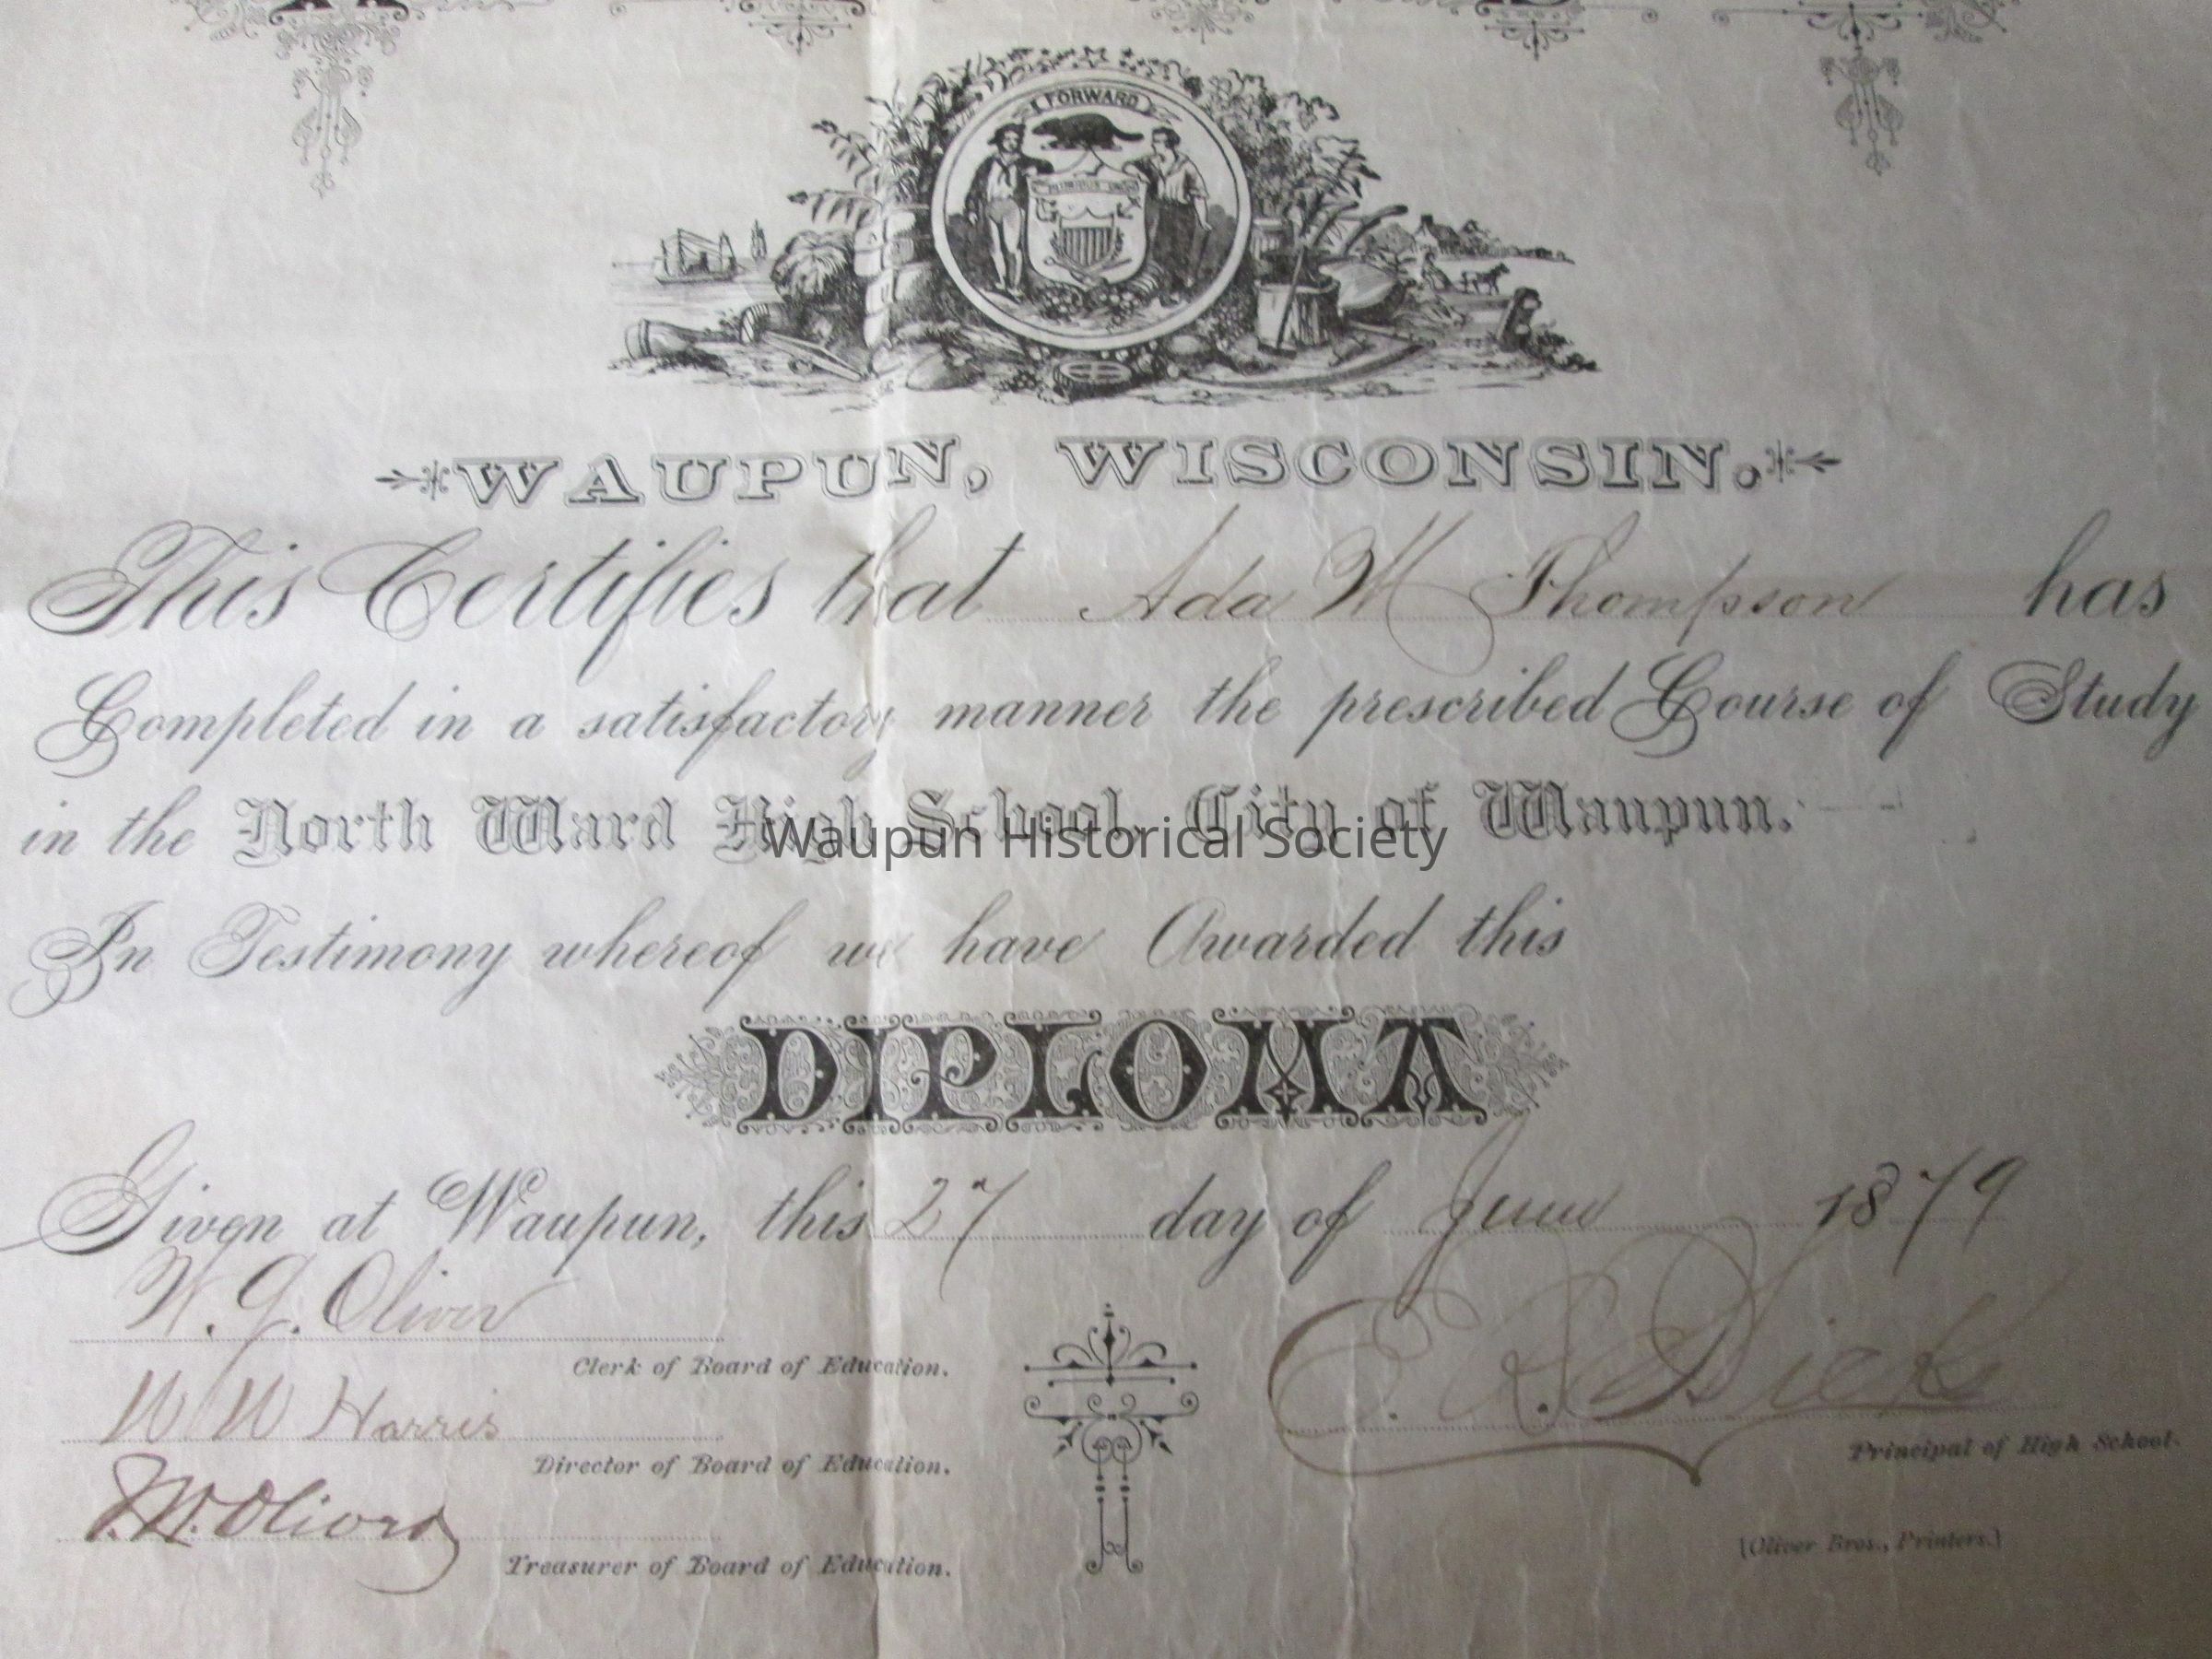 FORWARD
WAUPUN, WISCONSIN.
This Certifies that Ada M Thompson has
Completed in a satisfactory manner the prescribed Course of Study
in the North Ward High School, City of Waupun.
Waupun Historical Society
In Testimony whereof we have Awarded this
DIPLOMA
Given at Waupun, this 27 day of June 1879
W. G. Oliver
Clerk of Board of Education.
W W Harris
Director of Board of Education.
Treasurer of Board of Education.
Principal of High School.
(Oliver Bros., Printers.)